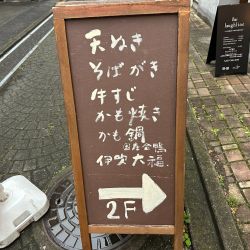 天ぬき
そばがき
牛すじ
かも焼き
かも鍋
国産合鴨
伊吹大福
2F